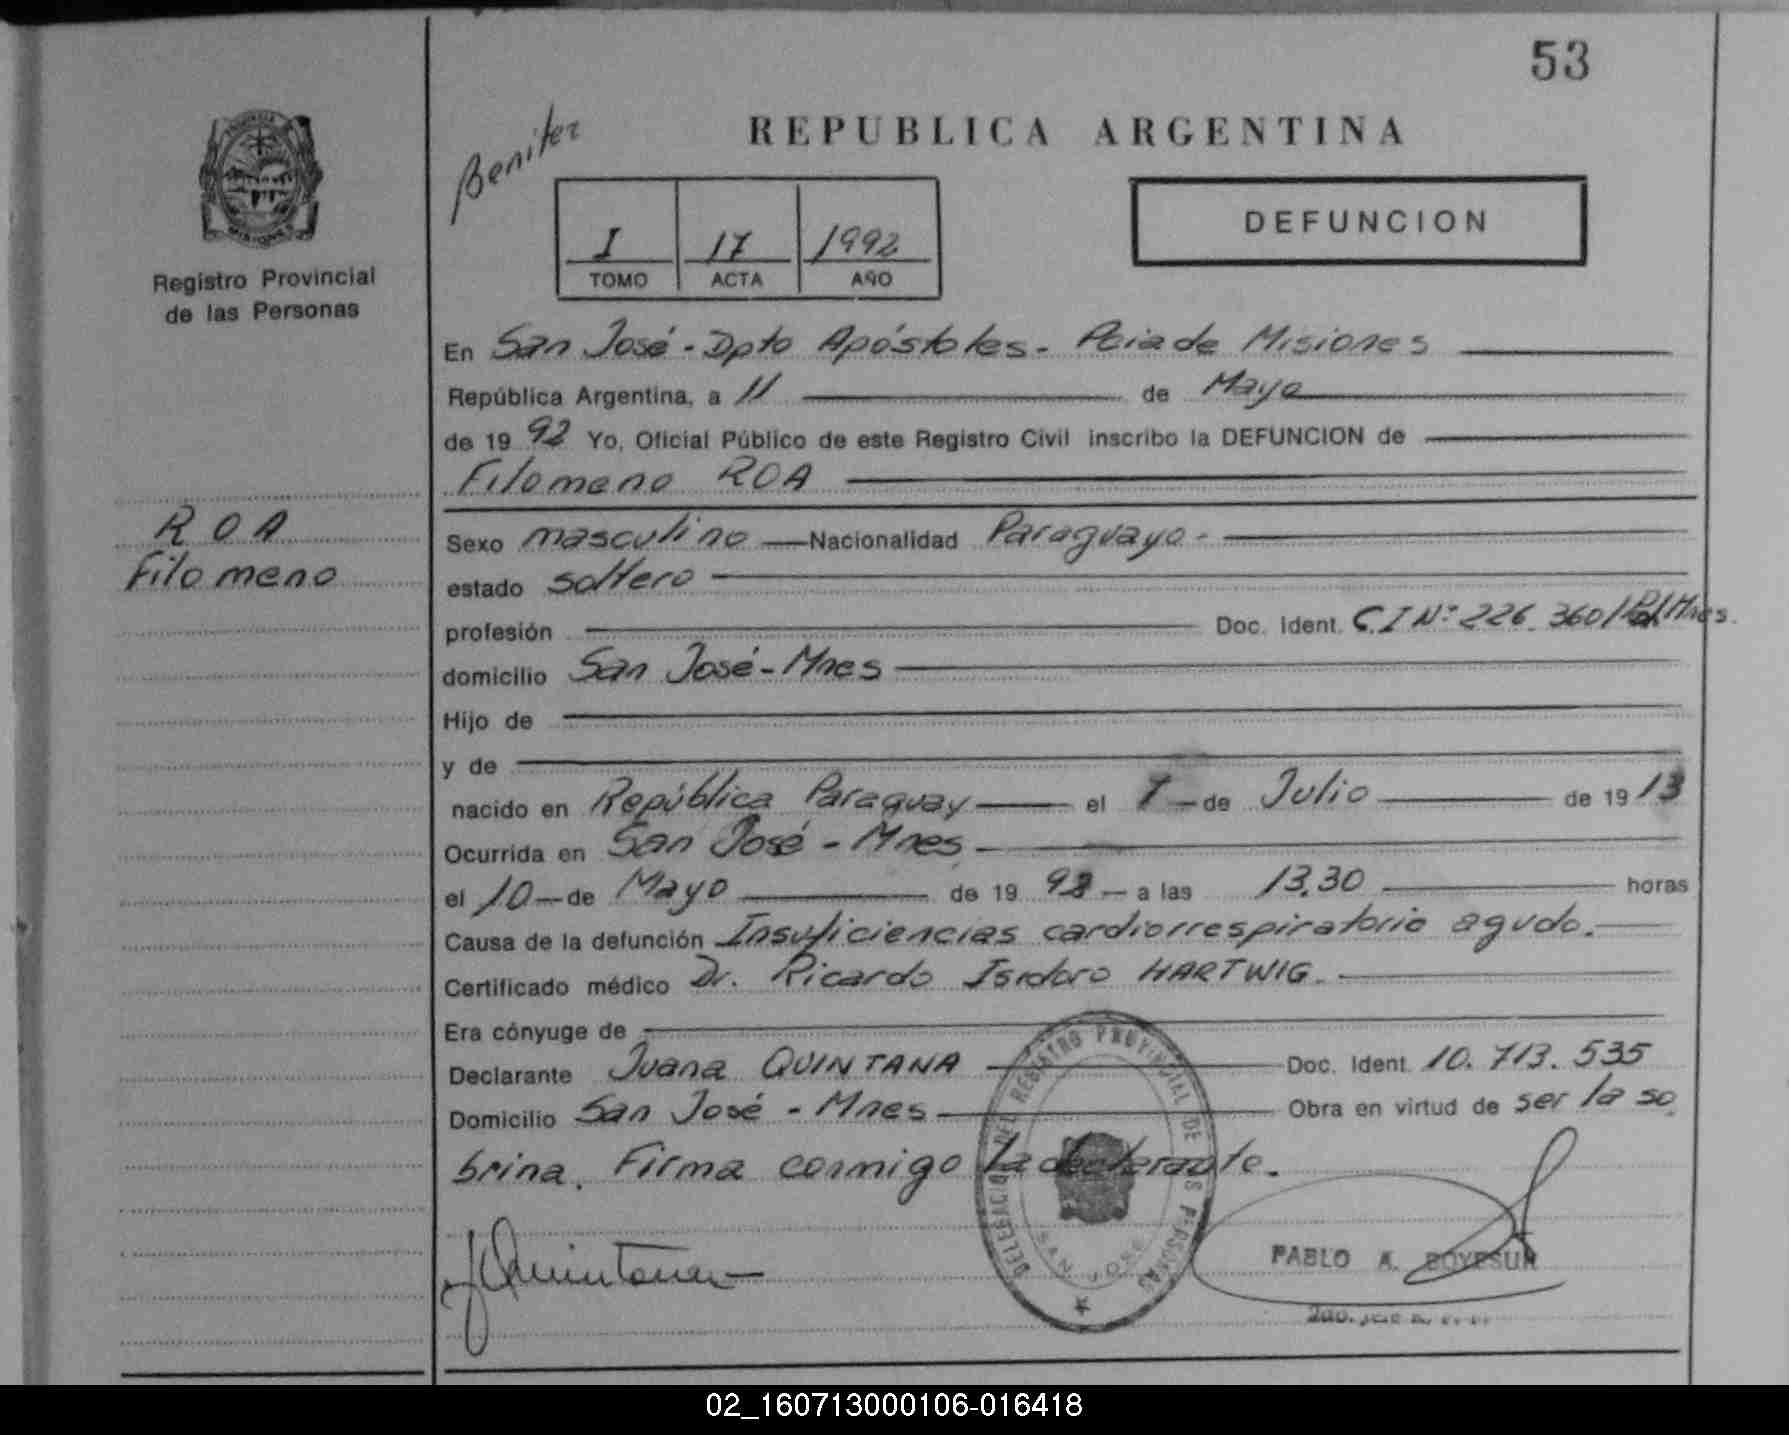 53
Beniter
REPUBLICA ARGENTINA
PROVINCIA
MISIONES
Registro Provincial
de las Personas
I 17 1992
TOMO ACTA AÑO
DEFUNCION
En San José - Dpto Apóstoles - Pcia de Misiones
República Argentina, a 11 de Mayo
de 19 92 Yo, Oficial Público de este Registro Civil inscribo la DEFUNCION de
Filomeno ROA
ROA
Filomeno
Sexo masculino Nacionalidad Paraguayo -
estado soltero
profesión Doc. Ident. C.I Nº 226.360/Pol/Mnes.
domicilio San José - Mnes
Hijo de
y de
nacido en República Paraguay el 7 de Julio de 19 13
Ocurrida en San José - Mnes
el 10 de Mayo de 19 92 a las 13,30 horas
Causa de la defunción Insuficiencias cardiorrespiratorio agudo.
Certificado médico Dr. Ricardo Isidoro HARTWIG.
Era cónyuge de
Declarante Juana QUINTANA Doc. Ident. 10.713.535
Domicilio San José - Mnes Obra en virtud de ser la so
brina. Firma conmigo la declarante.
DELEGACION DEL REGISTRO PROVINCIAL DE LAS PERSONAS
SAN JOSE
J Quintana
PABLO A. BOYESUK
02_160713000106-016418